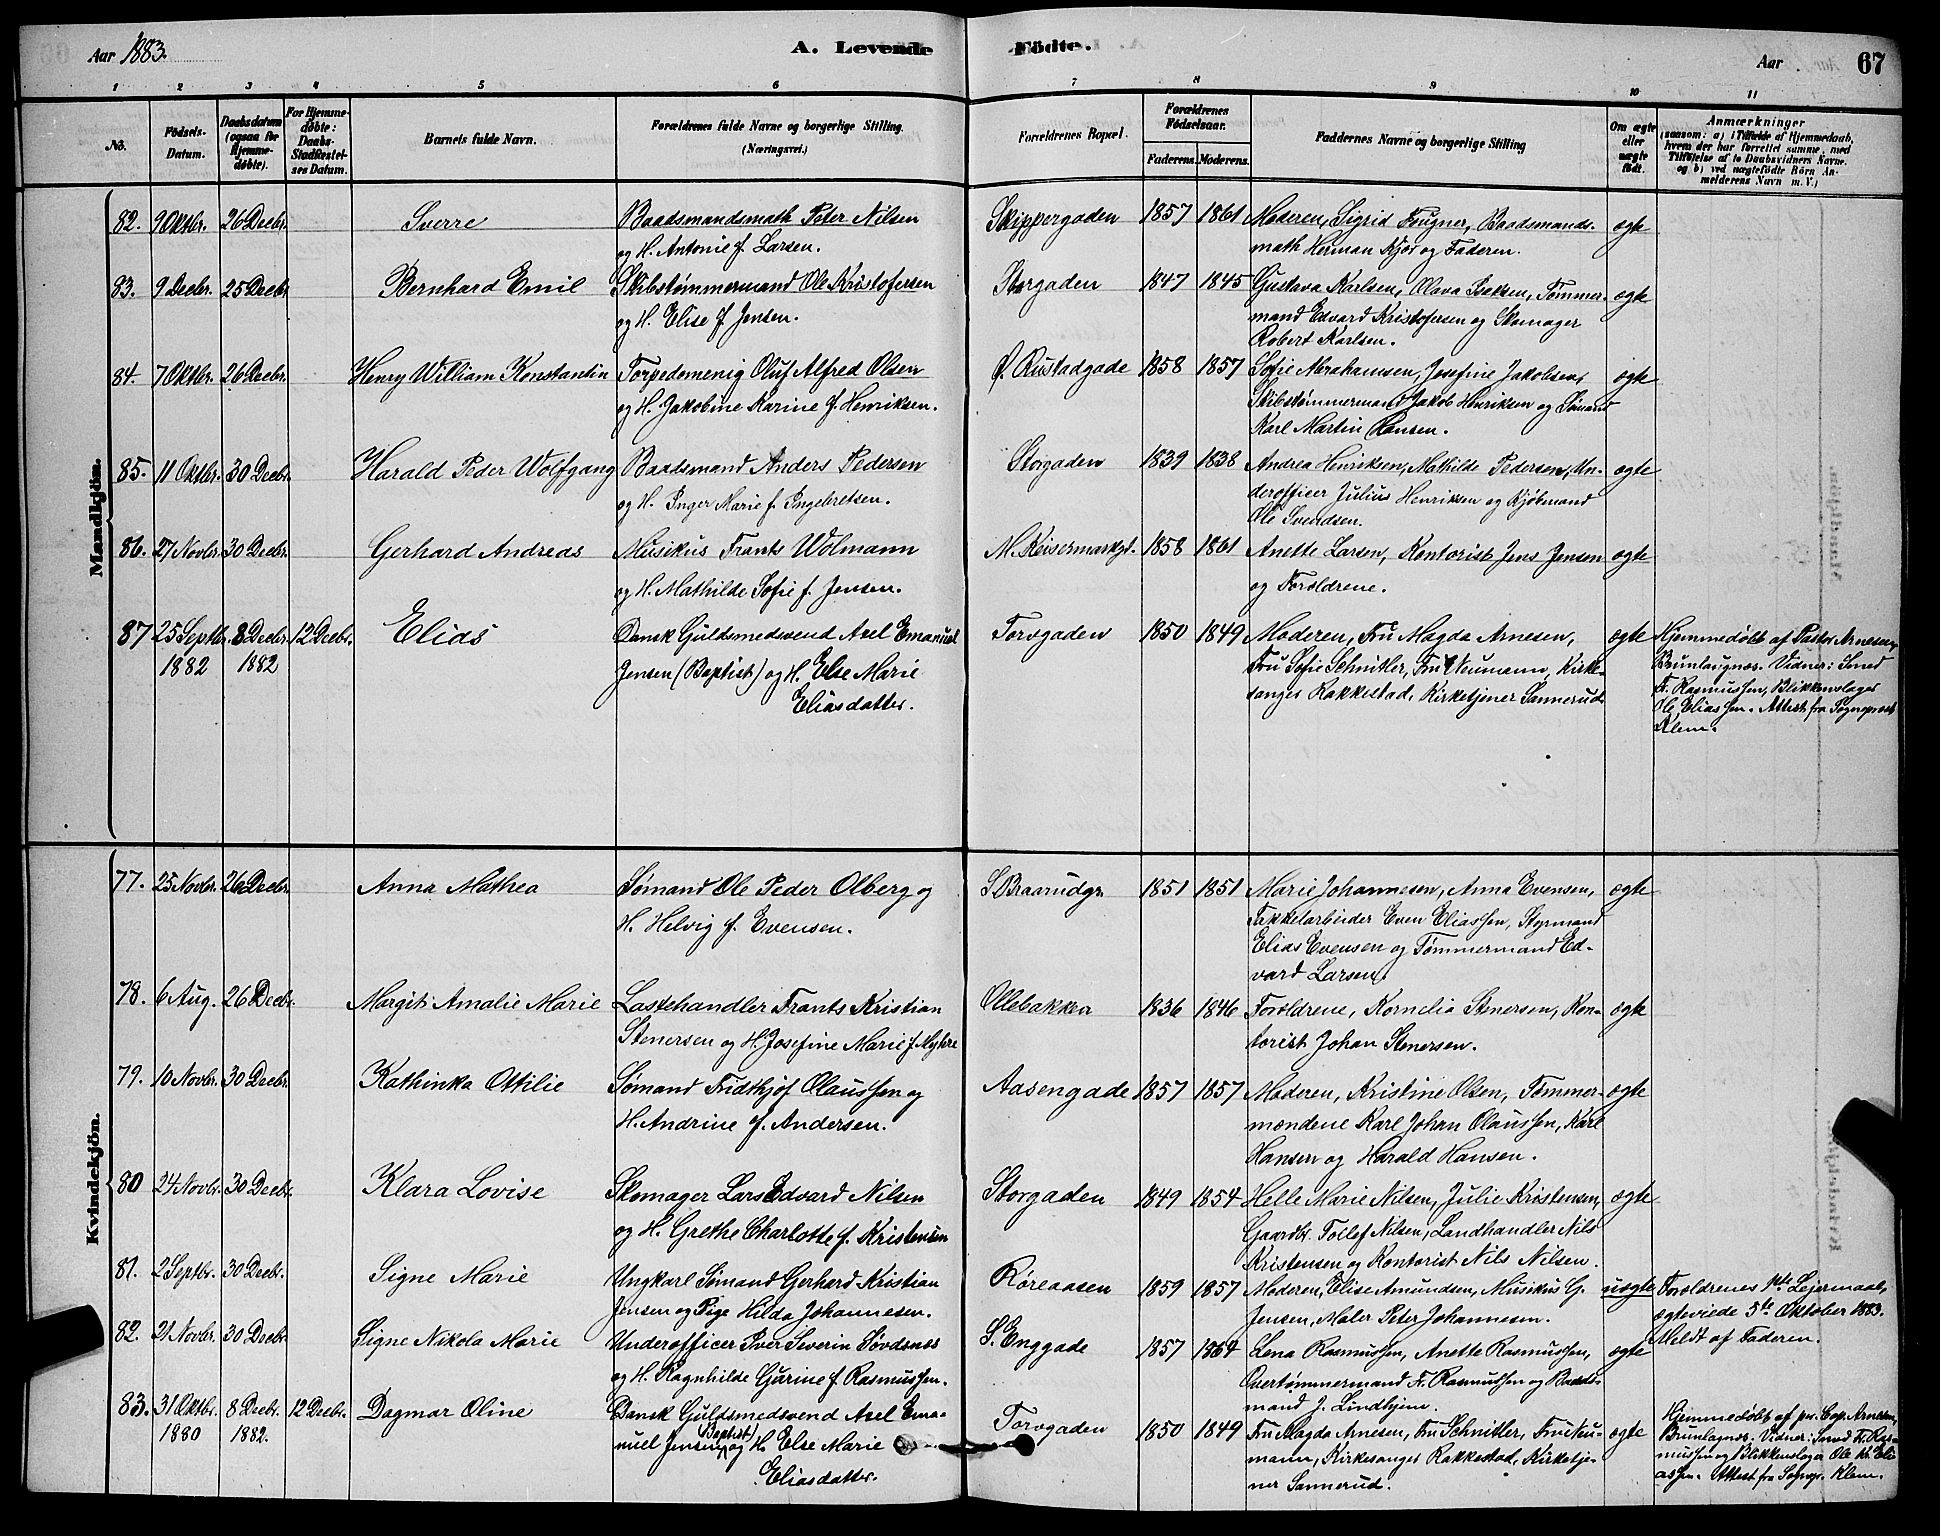 Aar 1883.
A. Levende Fødte.
Aar
67
1 2 3 4 5 6 7 8 9 10 11
No.
Födsels-Datum.
Daabsdatum (ogsaa for Hjemmedøbte).
For Hjemmedøbte: Daabs-Stadfæstelses Datum.
Barnets fulde Navn.
Forældrenes fulde Navne og borgerlige Stilling. (Næringsvei.)
Forældrenes Bopæl.
Forældrenes Födselsaar.
Faderens. Moderens.
Faddernes Navne og borgerlige Stilling
Om ægte eller uægte födt.
Anmærkninger
(saasom: a) i Tilfælde af Hjemmedaab, hvem der har forrettet samme, med Tilföielse af to Daabsvidners Navne. og b) ved uægtefödte Börn Anmelderens Navn m. V.)
Mandkjön.
82. 9 Oktbr. 26 Decbr. Sverre Baadsmandsmath Peter Nilsen Skippergaden 1857 1861 Moderen, Sigrid Frugner, Baadsmands- ægte
og H. Antonie f. Larsen. math Herman Kjør og Faderen.
83. 9 Decbr. 25 Decbr Bernhard Emil Skibstømmermand Ole Kristofersen Storgaden 1847 1845 Gustava Karlsen, Olava Isaksen, Tømmer- ægte
og H. Elise f. Jensen. mand Edvard Kristofersen og Skomager
Robert Karlsen.
84. 7 Oktbr. 26 Decbr. Henry William Konstantin Torpedomenig Oluf Alfred Olsen Ø. Rustadgade 1858 1857 Sofie Abrahamsen, Josefine Jakobsen, ægte
og H. Jakobine Karine f. Henriksen. Skibstømmermand Jakob Henriksen og Sømand
Karl Martin Hansen.
85. 11 Oktbr. 30 Decbr. Harald Peder Wolfgang Baadsmand Anders Pedersen Storgaden 1839 1838 Andrea Henriksen, Mathilde Pedersen, Un- ægte
og H. Inger Marie f. Ingebretsen. derofficer Julius Henriksen og Kjøbmand
Ole Svendsen.
86. 27 Novbr. 30 Decbr. Gerhard Andreas Musikus Frants Wolmann M. Keisermarkgt. 1858 1861 Anette Larsen, Kontorist Jens Jensen ægte
og H. Mathilde Sofie f. Jensen. og Forældrene.
87 25 Septbr. 8 Decbr. 12 Decbr. Elias Dansk Guldsmedsvend Axel Emanuel Torvgaden 1850 1849 Moderen, Fru Magda Arnesen, ægte Hjemmedøbt af Pastor Arnesen,
1882 1882 Jensen (Baptist) og H. Else Marie Fru Sofie Schnitler, Fru Neumann, Kirke- Brunlaugnæs. Vidner: Smed
Eliasdatter. sanger Rakkestad, Kirketjener Sannerud. Fr. Rasmussen, Blikkenslager
Ole Eliassen. Attest fra Sogneprest
Klem.
Kvindekjön.
77. 25 Novbr. 26 Decbr. Anna Mathea Sømand Ole Peder Olberg og S. Braarudgr. 1851 1851 Marie Johannesen, Anna Evensen, ægte
H. Helvig f. Evensen. Takkelarbeider Even Eliassen, Styrmand
Elias Evensen og Tømmermand Ed-
vard Larsen.
78. 6 Aug. 26 Decbr. Margit Amalie Marie Lastehandler Frants Kristian Ollebakken 1836 1846 Forældrene, Kornelia Stenersen, Kon- ægte
Stenersen og H. Josefine Marie f. Myhre torist Johan Stenersen.
79. 10 Novbr. 30 Decbr. Kathinka Ottilie Sømand Fridthjof Olaussen og Aasengade 1857 1857 Moderen, Kristine Olsen, Tømmer- ægte
H. Andrine f. Andersen. mændene Karl Johan Olaussen, Karl
Hansen og Harald Hansen.
80 24 Novbr. 30 Decbr. Klara Lovise Skomager Lars Edvard Nilsen Storgaden 1849 1854 Helle Marie Nilsen, Julie Kristensen, ægte
og H. Grethe Charlotte f. Kristensen Gaardbr. Tollef Nilsen, Landhandler Nils
Kristensen og Kontorist Nils Nilsen.
81. 2 Septbr. 30 Decbr. Signe Marie Ungkarl Sømand Gerhard Kristian Røreaasen 1859 1857 Moderen, Elise Amundsen, Musikus G. uægte Forældrenes 1ste Leiermaal,
Jensen og Pige Hilda Johannesen. Jensen, Maler Peter Johannesen. ægteviede 5te Oktober 1883.
82. 21 Novbr. 30 Decbr. Signe Nikola Marie Underofficer Iver Severin Søvdsnes S. Enggade 1857 1864 Lena Rasmussen, Anette Rasmussen, ægte Meldt af Faderen.
og H. Ragnhilde Gurine f. Rasmussen. Overtømmermand Fr. Rasmussen og Baads-
mand J. Lindhjem.
83. 31 Oktbr. 8 Decbr. 12 Decbr. Dagmar Oline Dansk Guldsmedsvend Axel Ema- Torvgaden 1850 1849 Fru Magda Arnesen, Fru Schnitler, Fru Neu- ægte Hjemmedøbt af pr. Cap. Arnesen,
1880 1882. nuel Jensen (Baptist) og H. Else Marie mann, Kirkesanger Rakkestad, Kirketje- Brunlagnæs. Vidner: Smed Fr. Ras-
Eliasdatter. ner Sannerud. mussen og Blikkenslager Ole Kr. Eli-
assen. Attest fra Sognepr. Klem.